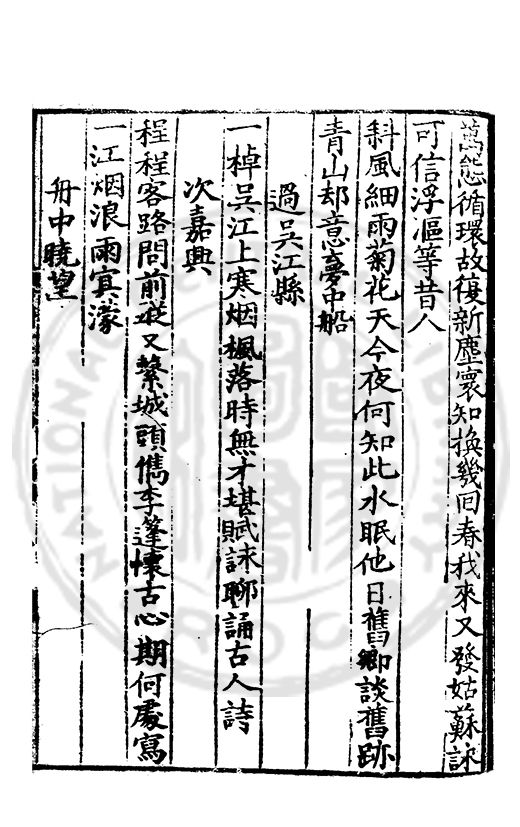 萬態循環故復新塵寰知換幾回春我來又發姑蘇詠
可信浮漚等昔人
斜風細雨菊花天今夜何知此水眠他日舊鄉談舊跡
青山却意夢中船
過吳江縣
一棹吳江上寒烟楓落時無才堪賦詠聊誦古人詩
次嘉興
程程客路問前蹤又繫城頭儁李篷懷古心期何處寫
一江烟浪雨寘濛
舟中曉望